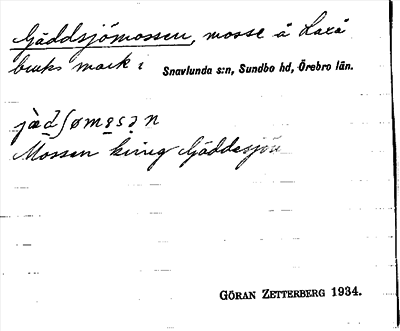 Gäddsjömossen, mosse å Laxå
bruks mark i Snavlunda s:n, Sundbo hd, Örebro län.
jæ̀dʃømɔsən
Mossen kring Gäddesjön
GÖRAN ZETTERBERG 1934.